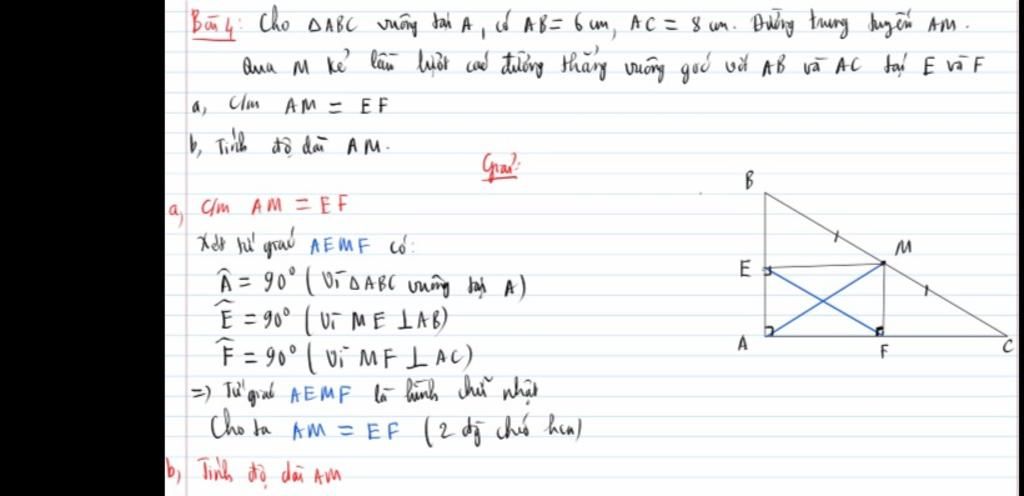 Bài 4: Cho △ABC vuông tại A, có AB = 6 cm, AC = 8 cm. Đường trung tuyến AM.
Qua M kẻ lần lượt các đường thẳng vuông góc với AB và AC tại E và F
a, c/m AM = EF
b, Tính độ dài AM.
Giải:
a, c/m AM = EF
Xét tứ giác AEMF có:
Â = 90° (Vì △ABC vuông tại A)
Ê = 90° (Vì ME ⊥ AB)
F̂ = 90° (Vì MF ⊥ AC)
=> Tứ giác AEMF là hình chữ nhật
Cho ta AM = EF (2 đg chéo hcn)
b, Tính độ dài AM
B
M
E
A
F
C